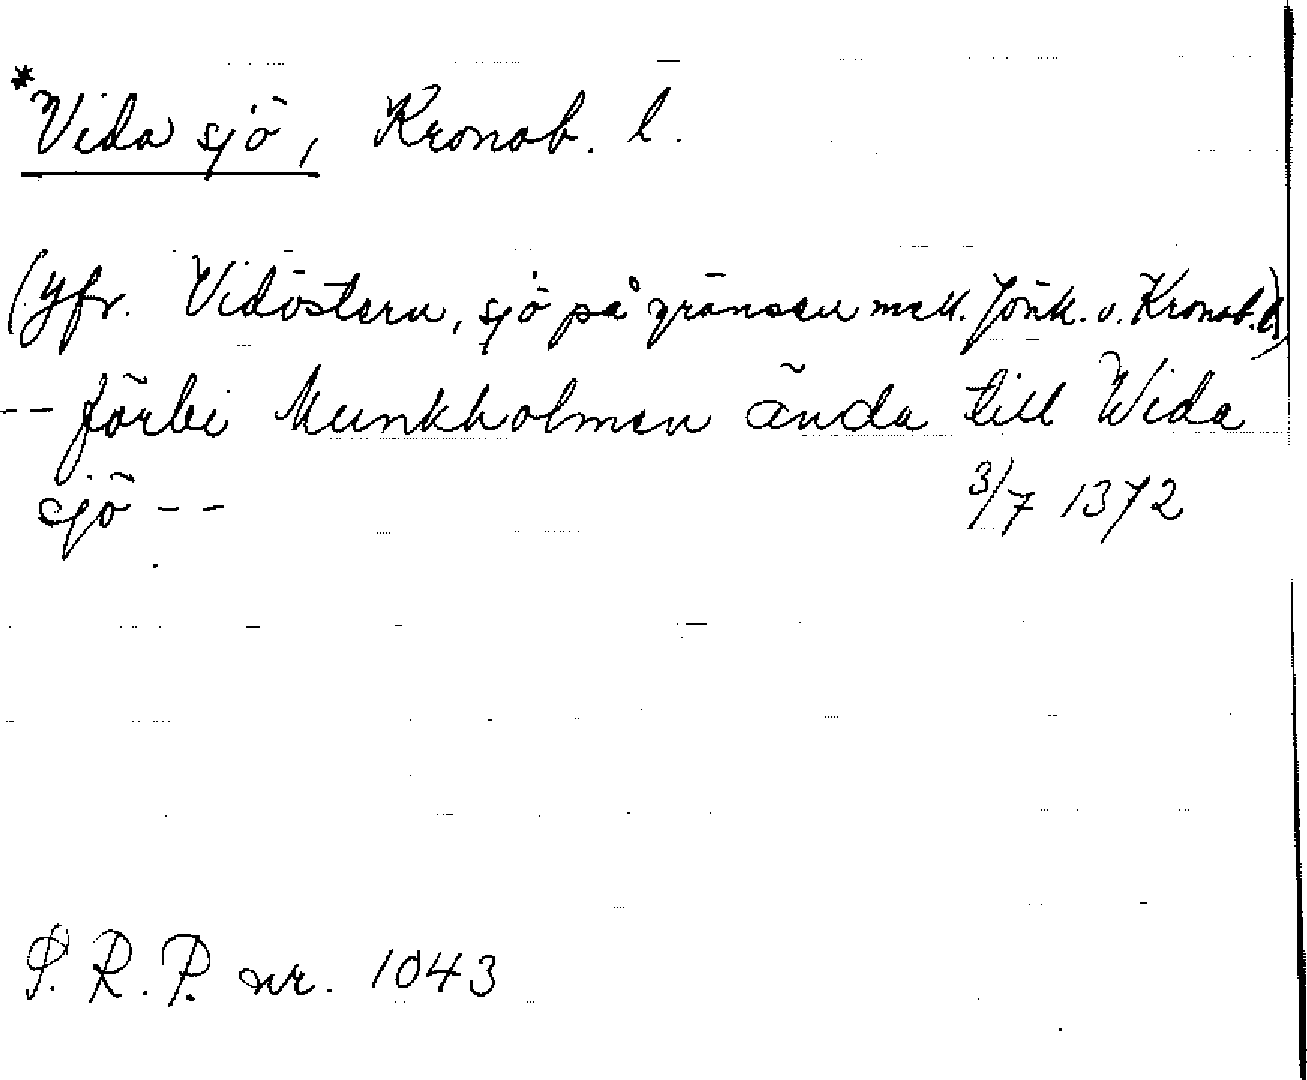 *Vida sjö, Kronob. l.
(Jfr. Vidöstern, sjö på gränsen mell. Jönk. o. Kronob. l.)
-- förbi Munkholmen ända till Wida
sjö -- 3/7 1372
S. R. P. nr. 1043